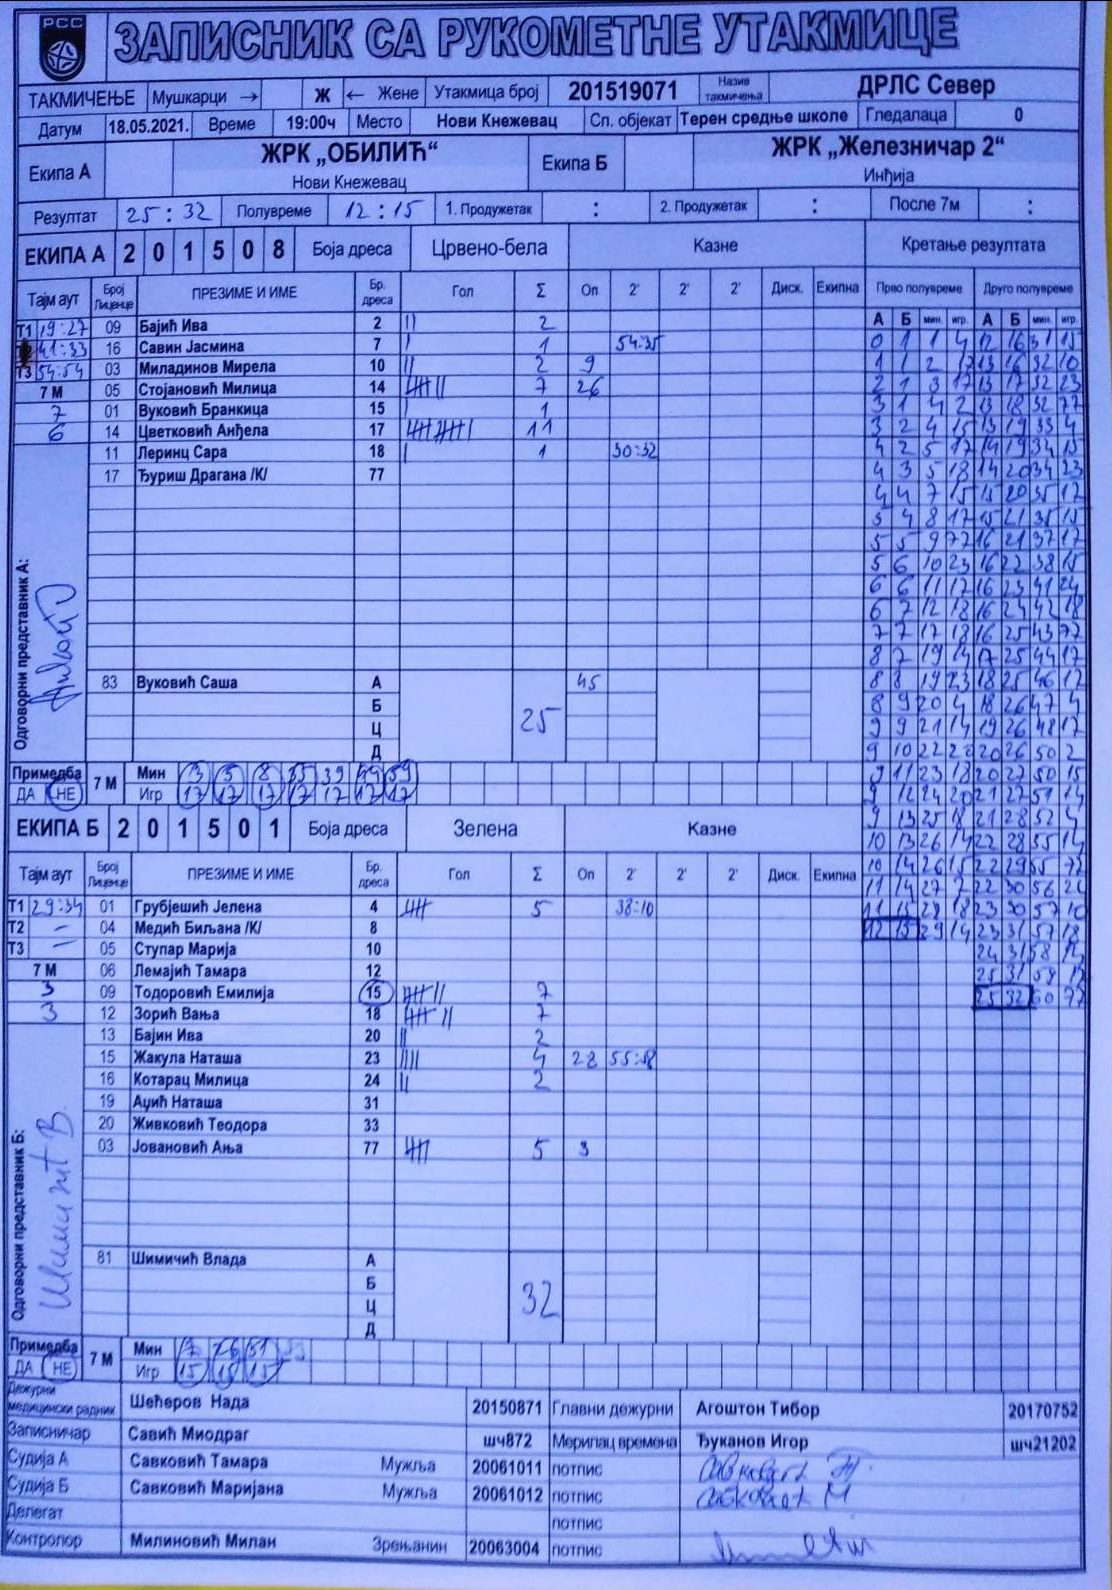 РСС
ЗАПИСНИК СА РУКОМЕТНЕ УТАКМИЦЕ
ТАКМИЧЕЊЕ Мушкарци → Ж ← Жене Утакмица број 201519071 Назив такмичења ДРЛС Север
Датум 18.05.2021. Време 19:00ч Место Нови Кнежевац Сп. објекат Терен средње школе Гледалаца 0
Екипа А ЖРК „ОБИЛИЋ“ Нови Кнежевац Екипа Б ЖРК „Железничар 2“ Инђија
Резултат 25:32 Полувреме 12:15 1. Продужетак : 2. Продужетак : После 7м :
ЕКИПА А 2 0 1 5 0 8 Боја дреса Црвено-бела Казне Кретање резултата
Тајм аут Број Лиценце ПРЕЗИМЕ И ИМЕ Бр. дреса Гол Σ Оп 2' 2' 2' Диск. Екипна Прво полувреме Друго полувреме
А Б мин. игр. А Б мин. игр.
Т1 19:27 09 Бајић Ива 2 || 2
41:33 16 Савин Јасмина 7 | 1 54:35
Т3 54:54 03 Миладинов Мирела 10 || 2 9
7 М 05 Стојановић Милица 14 7 26
7 01 Вуковић Бранкица 15 | 1
6 14 Цветковић Анђела 17 11
11 Леринц Сара 18 | 1 30:32
17 Ђуриш Драгана /К/ 77
Одговорни представник А:
83 Вуковић Саша А 45
Б
Ц
Д
25
Примедба ДА НЕ 7 М Мин 3 5 8 35 39 49 59
Игр 17 17 17 17 17 17 17
0 1 1 4 12 16 31 15
1 1 2 17 13 16 32 10
2 1 3 17 13 17 32 23
3 1 4 2 13 18 32 77
3 2 4 15 13 19 33 4
4 2 5 17 14 19 34 15
4 3 5 18 14 20 34 23
4 4 7 15 15 20 35 17
5 4 8 17 15 21 35 15
5 5 9 77 16 21 37 17
5 6 10 23 16 22 38 15
6 6 11 17 16 23 41 24
6 7 12 18 16 24 42 18
7 7 17 18 16 25 43 77
8 7 19 14 17 25 44 17
8 8 19 23 18 25 46 17
8 9 20 4 18 26 47 4
9 9 21 14 19 26 48 17
9 10 22 20 20 26 50 2
9 11 23 18 20 27 50 15
9 12 24 20 21 27 51 14
9 13 25 18 21 28 52 4
10 13 26 14 22 28 55 14
10 14 26 15 22 29 55 77
11 14 27 7 22 30 56 24
11 15 28 18 23 30 57 10
12 15 29 14 23 31 57 18
24 31 58 14
25 31 59 17
25 32 60 77
ЕКИПА Б 2 0 1 5 0 1 Боја дреса Зелена Казне
Тајм аут Број Лиценце ПРЕЗИМЕ И ИМЕ Бр. дреса Гол Σ Оп 2' 2' 2' Диск. Екипна
Т1 29:34 01 Грубјешић Јелена 4 5 38:10
Т2 – 04 Медић Биљана /К/ 8
Т3 – 05 Ступар Марија 10
7 М 06 Лемајић Тамара 12
3 09 Тодоровић Емилија 15 7
3 12 Зорић Вања 18 7
13 Бајин Ива 20 || 2
15 Жакула Наташа 23 |||| 4 28 55:58
16 Котарац Милица 24 || 2
19 Аџић Наташа 31
20 Живковић Теодора 33
03 Јовановић Ања 77 5 3
Одговорни представник Б:
81 Шимичић Влада А
Б
Ц
Д
32
Примедба ДА НЕ 7 М Мин 7 26 51
Игр 15 18 15
Дежурни медицински радник Шећеров Нада 20150871 Главни дежурни Агоштон Тибор 20170752
Записничар Савић Миодраг шч872 Мерилац времена Ђуканов Игор шч21202
Судија А Савковић Тамара Мужља 20061011 потпис
Судија Б Савковић Маријана Мужља 20061012 потпис
Делегат потпис
Контролор Милиновић Милан Зрењанин 20063004 потпис